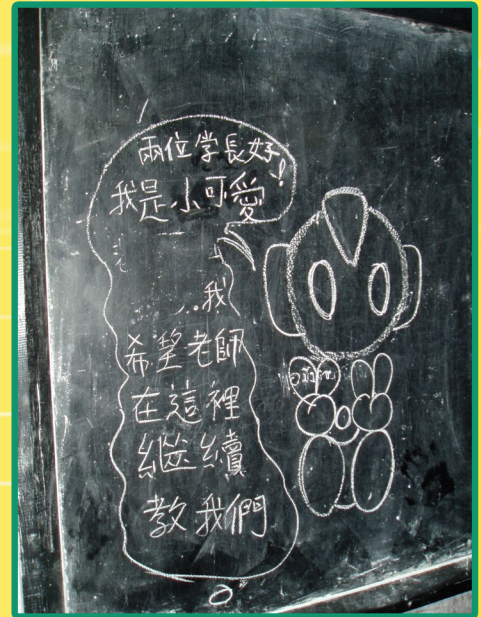 兩位学長好!
我是小可愛
..我
希望老師
在這裡
繼續
教我們